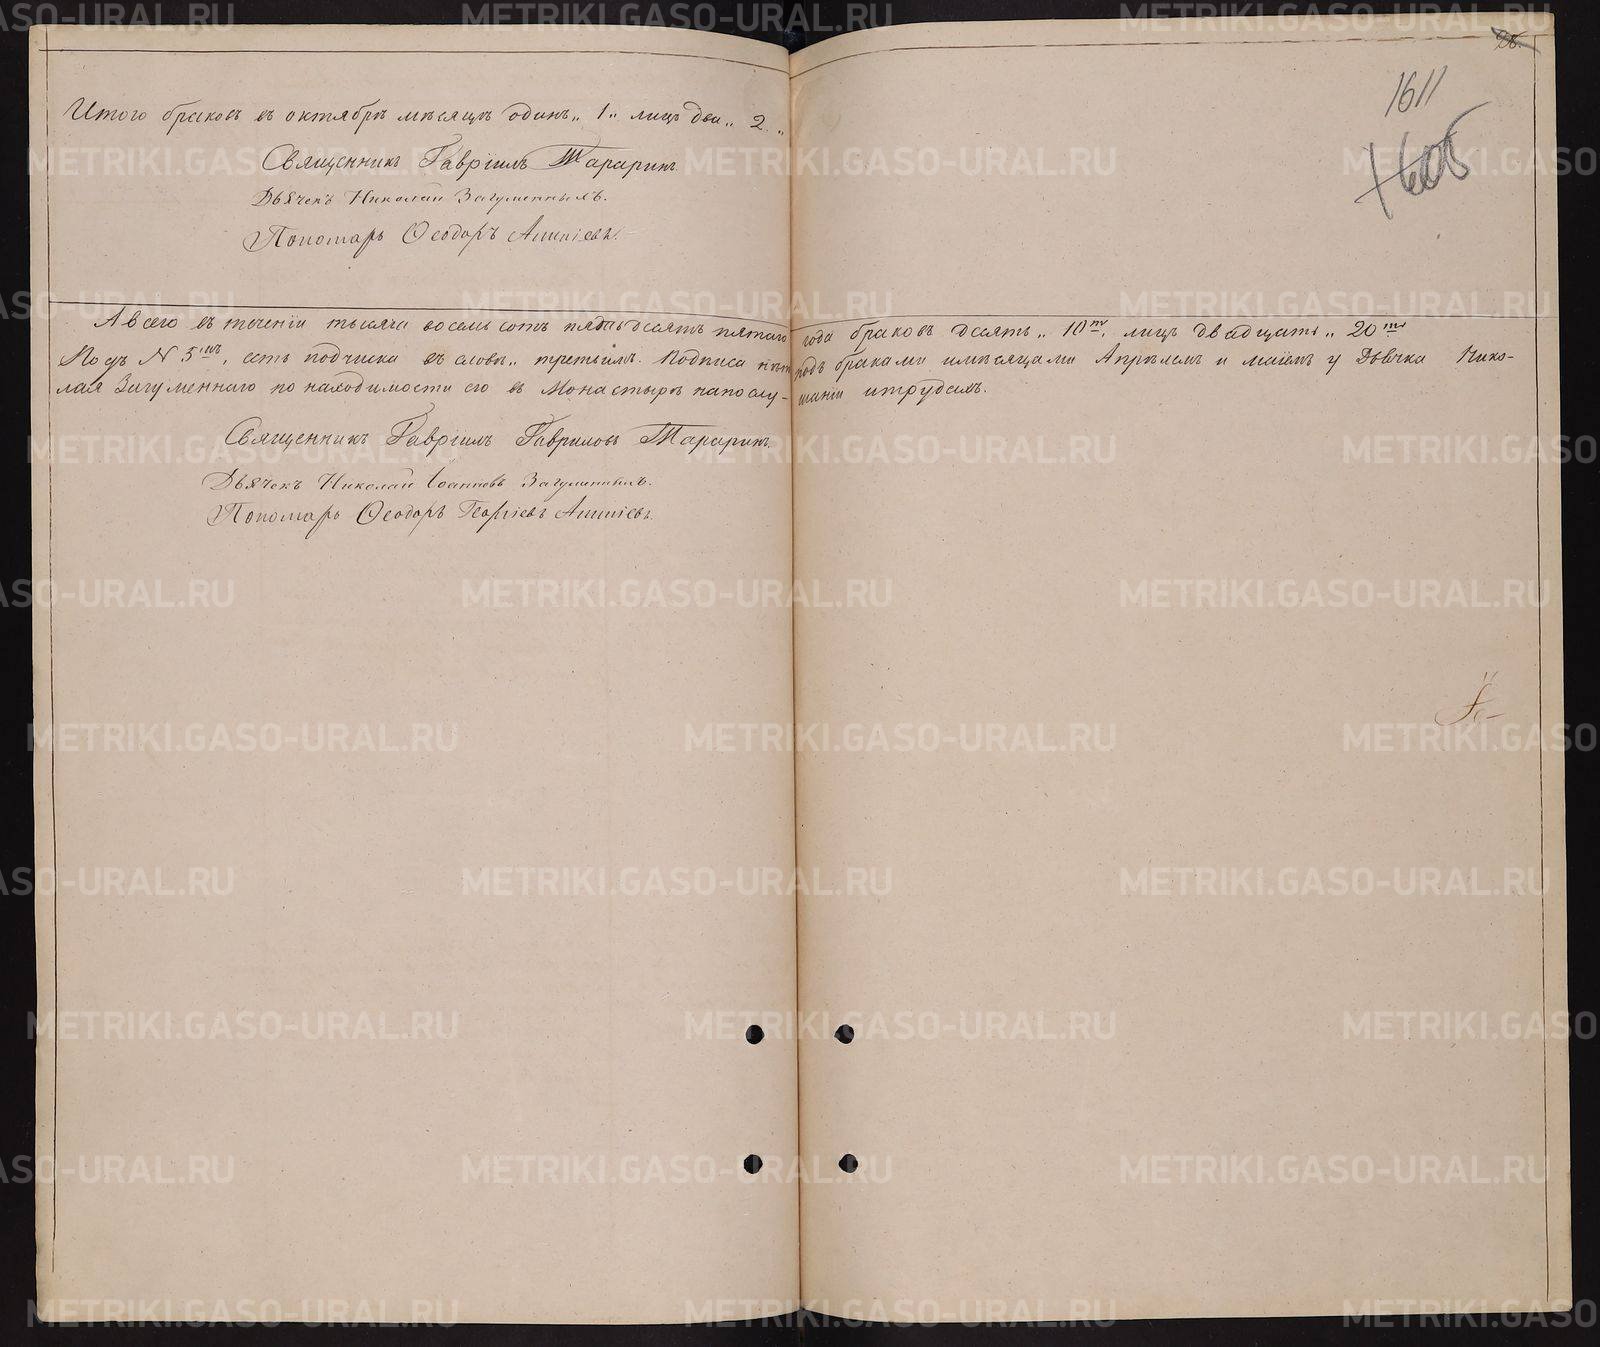 Итого браковъ въ октябрѣ мѣсяцѣ одинъ „ 1 „ лицъ два „ 2 „
Священникъ Гавріилъ Тараринъ
Дьячекъ Николай Загуменныхъ.
Пономарь Ѳеодоръ
А всего въ теченіи тысяча восемьсотъ пядьдесятъ пятаго года браковъ десять „ 10ть, лицъ двадцать „ 20ть
Подъ № 5мъ, есть подчиска въ словѣ „ третьимъ. Подписа нѣтъ подъ браками имѣсяцами Апрѣлемъ и маіемъ у Дьячка Нико-
лая Загуменнаго по находимости его въ Монастырѣ напослу- шаніи итрудахъ.
Священникъ Гавріилъ Гавриловъ Тараринъ.
Дьячекъ Николай Іоанновъ Загуменныхъ.
Пономарь Ѳеодоръ Георгіевъ
1611
605
METRIKI.GASO-URAL.RU